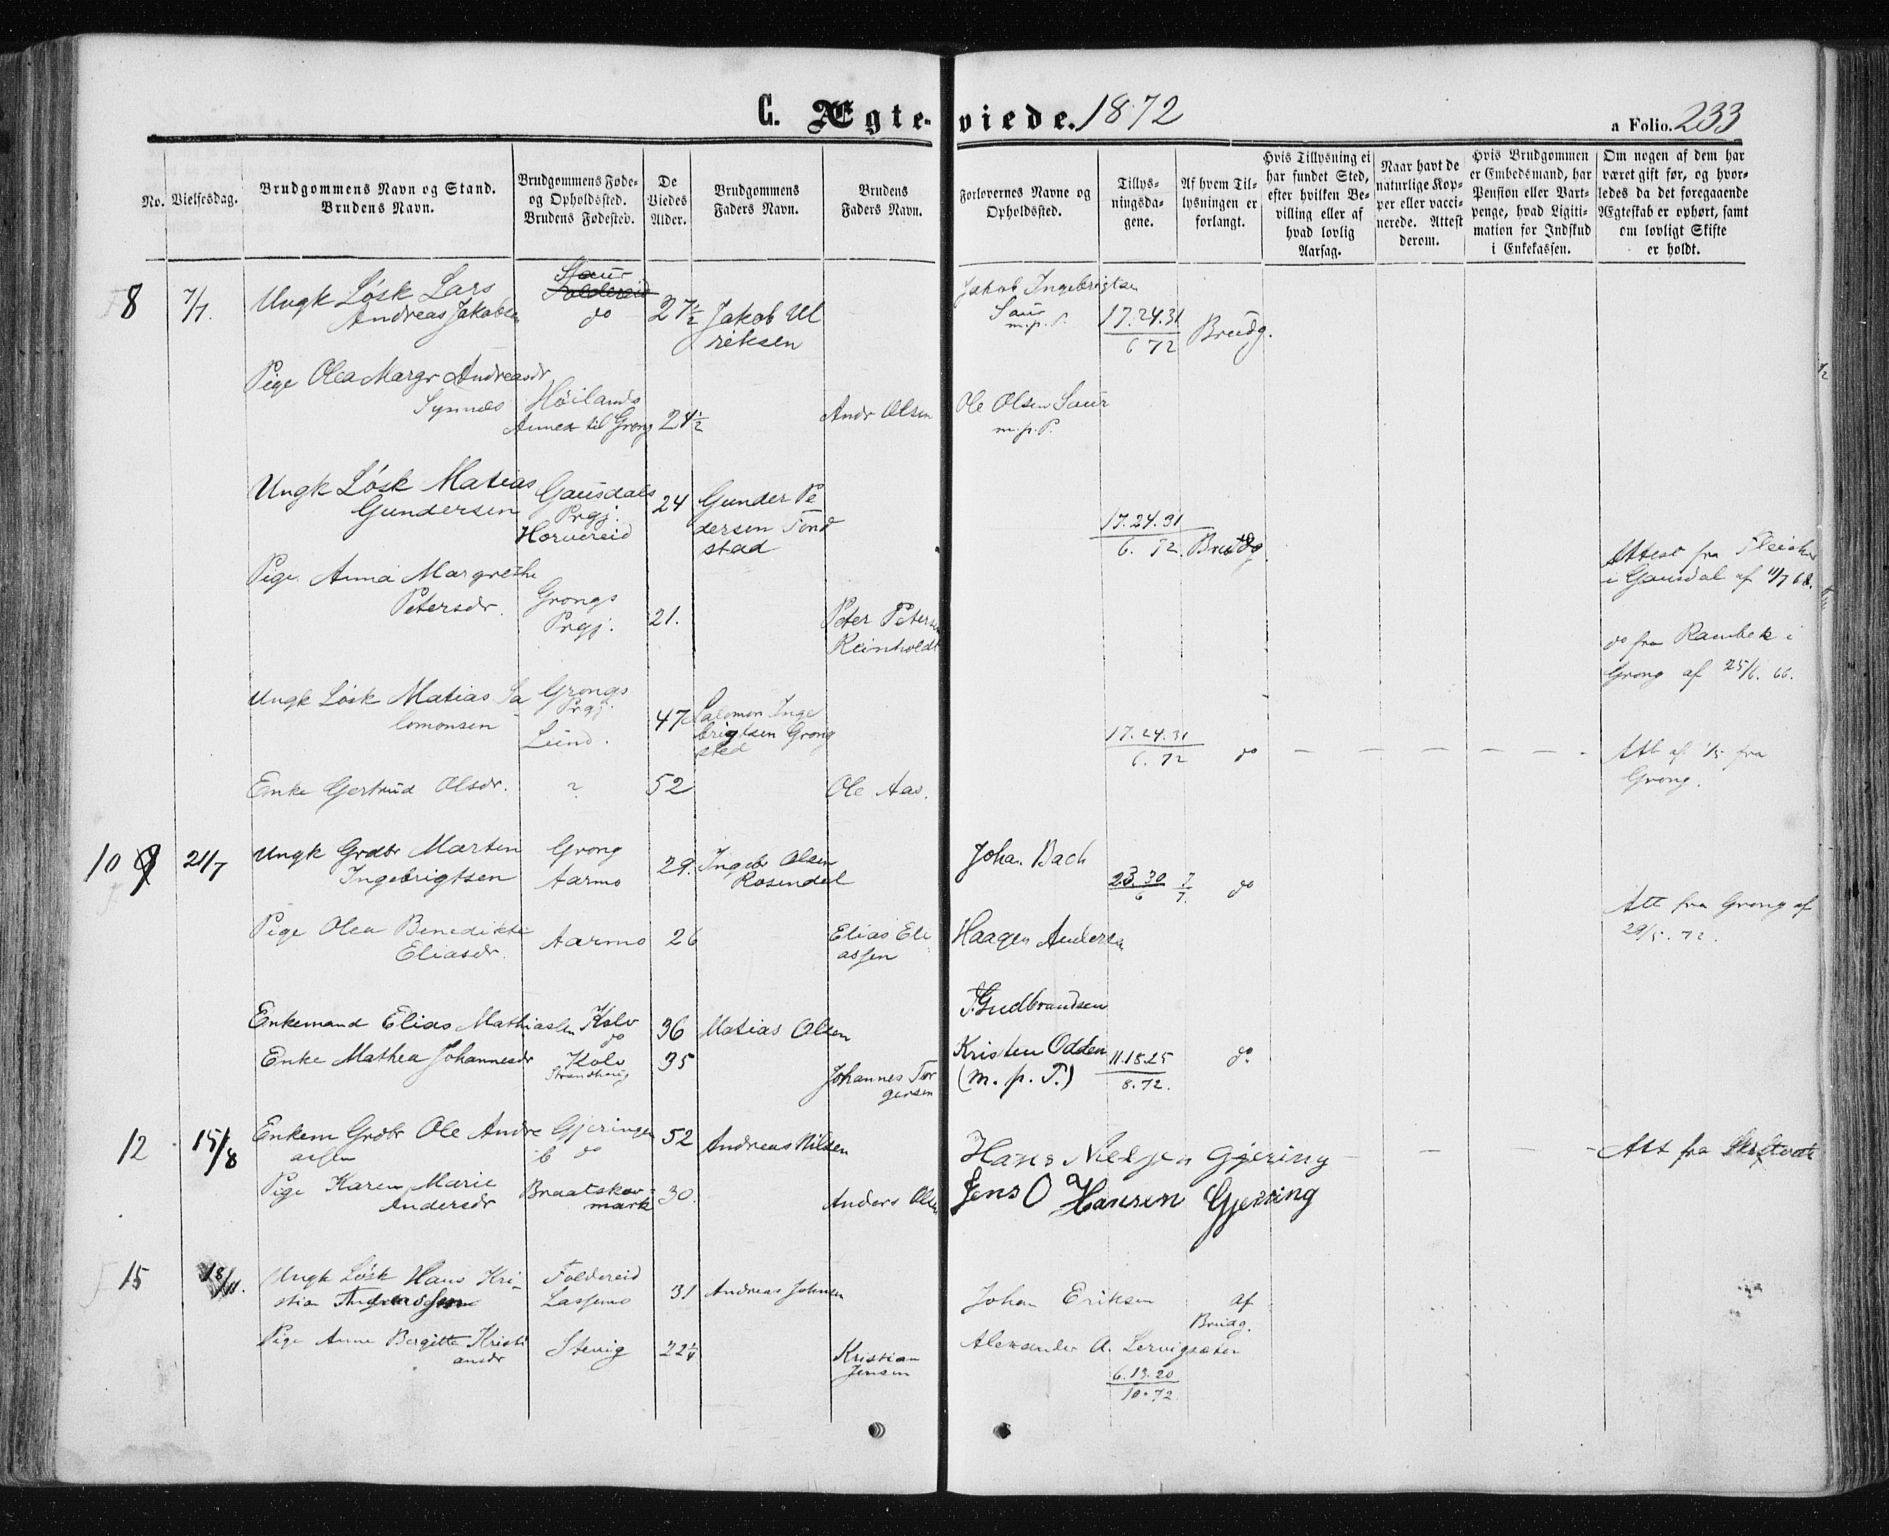 C. Ægteviede. 1872
a Folio. 233
No.
Vielsesdag.
Brudgommens Navn og Stand.
Brudens Navn.
Brudgommens Føde-
og Opholdssted.
Brudens Fødested.
De
Viedes
Alder.
Brudgommens
Faders Navn.
Brudens
Faders Navn.
Forlovernes Navne og
Opholdssted.
Tillys-
ningsda-
gene.
Af hvem Til-
lysningen er
forlangt.
Hvis Tillysning ei
har fundet Sted,
efter hvilken Be-
villing eller af
hvad lovlig
Aarsag.
Naar havt de
naturlige Kop-
per eller vacci-
nerede. Attest
derom.
Hvis Brudgommen
er Embedsmand, har
Pension eller Vart-
penge, hvad Ligiti-
mation for Indskud
i Enkekassen.
Om nogen af dem har
været gift før, og hvor-
ledes da det foregaaende
Ægteskab er ophørt, samt
om lovligt Skifte
er holdt.
8 7/7. Ungk Løsk Lars
Andreas Jakobsen
Saur
Foldereid
do
27½
Jakob Ul
riksen
Jakob Ingebrigtsen
Saur
m.p.P.
17.24.31
6 72
Brudg.
Pige Olea Margr Andreasdr
Synnes
Høilands
Annex til Grong
24½
Andr Olsen
Ole Olsen Saur
m.p.P.
Ungk Løsk Matias
Gundersen
Gausdals
Prgj.
Horvereid
24
Gunder Pe
dersen Tond
stad
17.24.31
6. 72.
Brudg
Attest fra Fleicher
i Gausdal af 11/7 68.
Pige Anna Margrethe
Petersdr.
Grongs
Prgj.
21.
Peter Petersen
Reinholdt
do fra Rambek i
Grong af 25/6. 66.
Ungk Løsk Matias Sa
lomonsen
Grongs
Prgj.
Lund.
47
Salomon Inge
brigtsen Grong
sted
17.24.31
6. 72
do
Att af 1/5 fra
Grong.
Enke Gertrud Olsdr.
?
52
Ole Aas.
10 9 21/7 Ungk Grdbr Martin
Ingebrigtsen
Grong
Aarmo
29.
Ingebr Olsen
Rosendal
Johan Bach
23 30 7
6 7.
do
Att fra Grong af
29/5. 72.
Pige Olea Benedikte
Eliasdr.
Aarmo
26
Elias Eli
assen
Haagen Andersen
Enkemand Elias Mathiassen
Kolv
do
36
Matias Olsen
T Gudbrandsen
Enke Mathea Johannesdr
Kolv
Strandhaug
35
Johannes Tor
gersen
Kristen Odden
(m. p. P.)
11.18.25
8.72.
do
12 15/8 Enkem Grdbr Ole Andre
assen
Gjeringen
do
52
Andreas Nilsen
Hans Nielsen Gjering
Att fra
Pige Karen Marie
Andersdr
Braatskov
mark
30.
Anders Olsen
Jens O Hansen Gjering
15 18/11. Ungk Løsk Hans Kri-
stian Andreassen
Foldereid
Lassemo
31
Andreas Johnsen
Johan Eriksen
af
Brudg.
Pige Anne Bergitte Kristi
ansdr
Stevig
22¼
Kristian
Jensen
Alexander A. Lervigsæter
6.13.20
10.72.